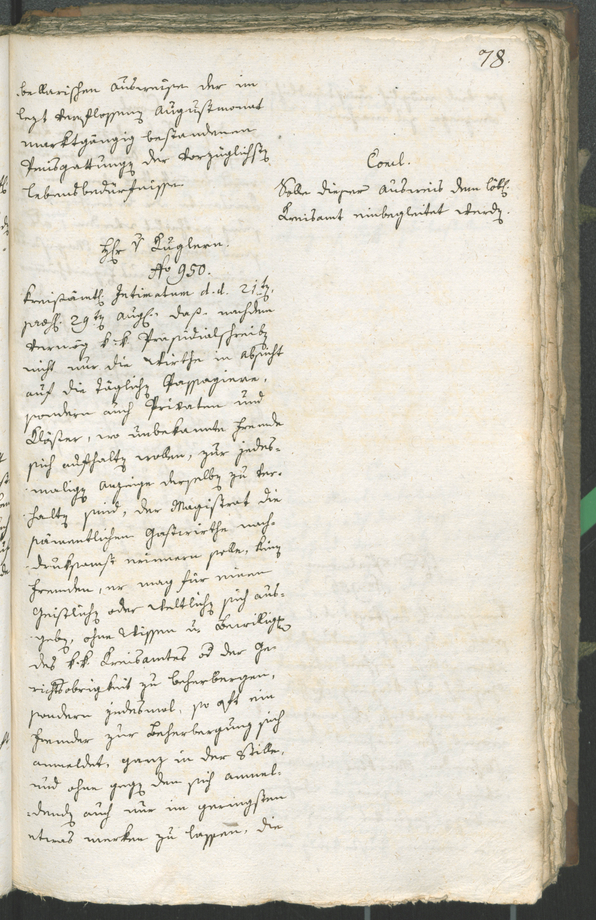 78.
bellarischen Ausweise der im
lezt verflossenen Augustmonat
marktgängig bestandenen
Preisgattungen der vorzüglichsten
Lebensbedürfnisse
Concl.
Solle dieser Ausweis dem löbl.
Kreisamt einbegleitet werden.
H. v Kuglern.
No 950.
Kreisämtl. Intimatum d. d. 21ten,
praes. 29ten Aug. daß, nachdem
vermög k. k. Praesidialschreiben
nicht nur die Wirthe in Absicht
auf die täglichen Passagiere,
sondern auch Privaten und
Klöster, wo unbekannte Fremde
sich aufhalten wollen, zur jedes-
maligen Anzeige derselben zu ver-
halten sind, der Magistrat die
sämmentlichen Gastwirthe nach-
druksamst erinnern solle, kein
Fremden, er mag für einen
Geistlichen oder Weltlichen sich aus-
geben, ohne Wissen u. Bewilligen
des k. k. Kreisamtes od der Ge-
richtsobrigkeit zu beherbergen,
sondern jedesmal, so oft ein
Fremder zur Beherbergung sich
anmeldet, ganz in der Stille,
und ohne gegen den sich anmel-
denden auch nur im geringsten
etwas merken zu lassen, die